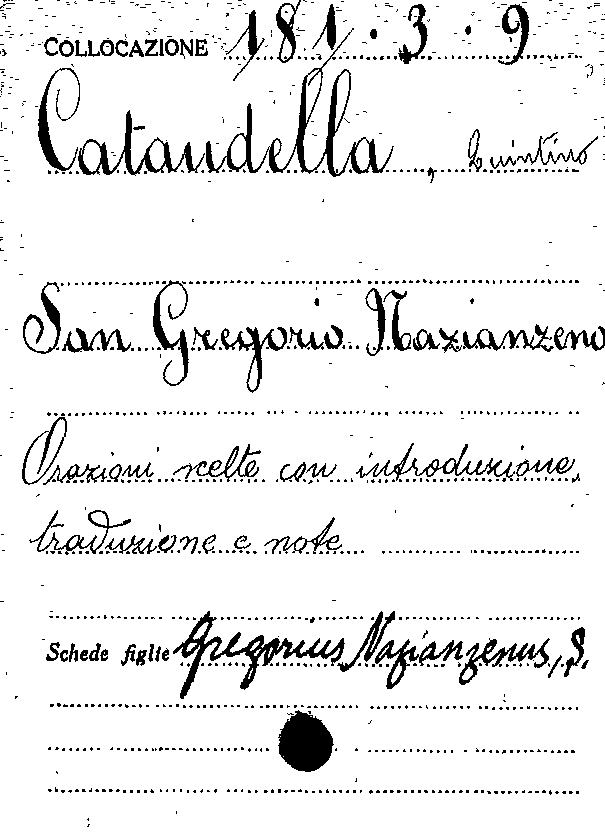 COLLOCAZIONE 181·3·9
Cataudella, Quintino
San Gregorio Nazianzeno
Orazioni scelte con introduzione,
traduzione e note
Schede figlie Gregorius Nazianzenus, S.